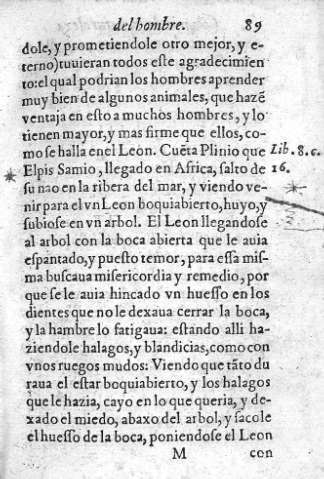 del hombre. 89
dole, y prometiendole otro mejor, y e-
terno) tuuieran todos este agradecimien
to: el qual podrian los hombres aprender
muy bien de algunos animales, que hazẽ
ventaja en esto a muchos hombres, y lo
tienen mayor, y mas firme que ellos, co-
mo se halla en el Leon. Cuẽta Plinio que Lib. 8. c.
Elpis Samio, llegado en Africa, salto de 16.
su nao en la ribera del mar, y viendo ve-
nir para el vn Leon boquiabierto, huyo, y
subiose en vn arbol. El Leon llegandose
al arbol con la boca abierta que le auia
espantado, y puesto temor, para essa mis-
ma buscaua misericordia y remedio, por
que se le auia hincado vn huesso en los
dientes que no le dexaua cerrar la boca,
y la hambre lo fatigaua: estando alli ha-
ziendole halagos, y blandicias, como con
vnos ruegos mudos: Viendo que tãto du
raua el estar boquiabierto, y los halagos
que le hazia, cayo en lo que queria, y de-
xado el miedo, abaxo del arbol, y sacole
el huesso de la boca, poniendose el Leon
M con